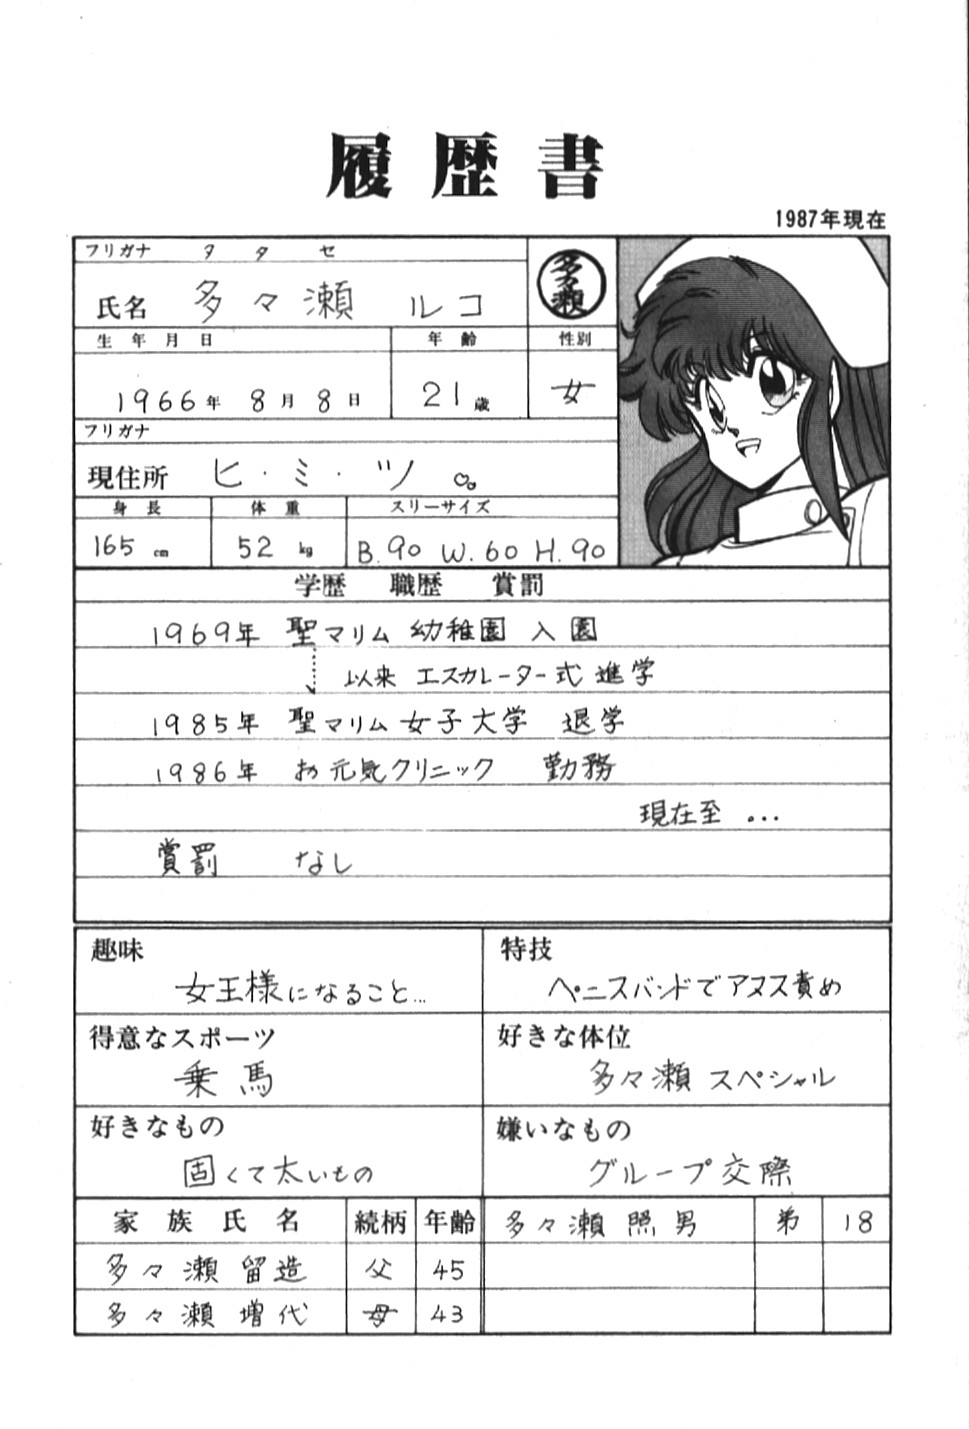 履歴書
1987年現在
フリガナ タタセ
氏名 多々瀬 ルコ
多々瀬
生年月日 年齢 性別
1966年 8月 8日 21歳 女
フリガナ
現住所 ヒ・ミ・ツ
身長 体重 スリーサイズ
165cm 52kg B.90 W.60 H.90
学歴 職歴 賞罰
1969年 聖マリム 幼稚園 入園
以来 エスカレーター式 進学
1985年 聖マリム 女子大学 退学
1986年 お元気クリニック 勤務
現在至 ...
賞罰 なし
趣味
女王様になること...
特技
ペニスバンドでアヌス責め
得意なスポーツ
乗馬
好きな体位
多々瀬 スペシャル
好きなもの
固くて太いもの
嫌いなもの
グループ交際
家族氏名 続柄 年齢
多々瀬 照男 弟 18
多々瀬 留造 父 45
多々瀬 増代 母 43